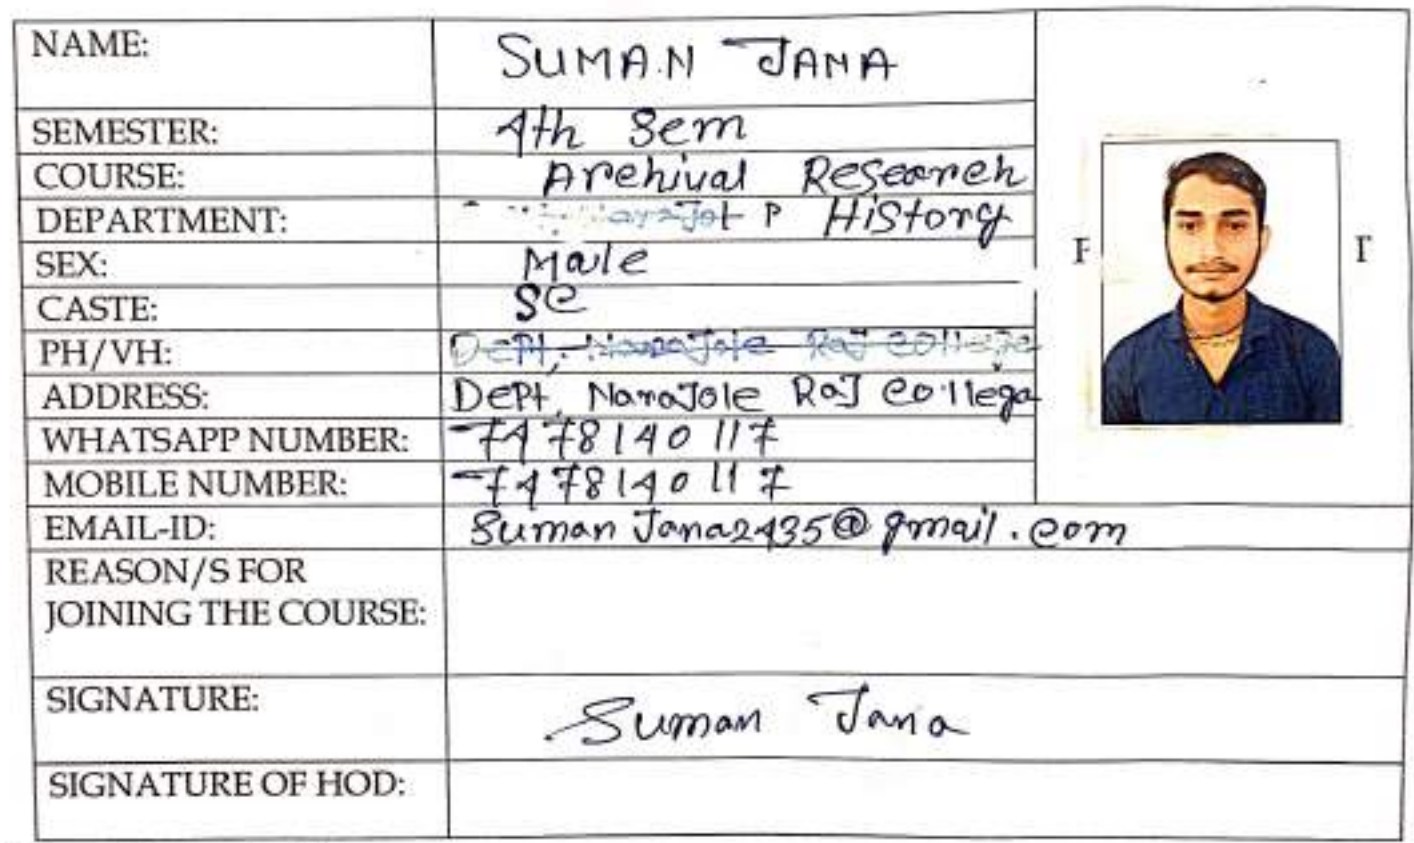 NAME: SUMAN JANA
SEMESTER: 4th Sem
COURSE: Archival Research
DEPARTMENT: History
SEX: Male
CASTE: SC
PH/VH: Dept, Narajole Raj College
ADDRESS: Dept, Narajole Raj College
WHATSAPP NUMBER: 7478140117
MOBILE NUMBER: 7478140117
EMAIL-ID: Suman Jana2435@gmail.com
REASON/S FOR
JOINING THE COURSE:
SIGNATURE: Suman Jana
SIGNATURE OF HOD: